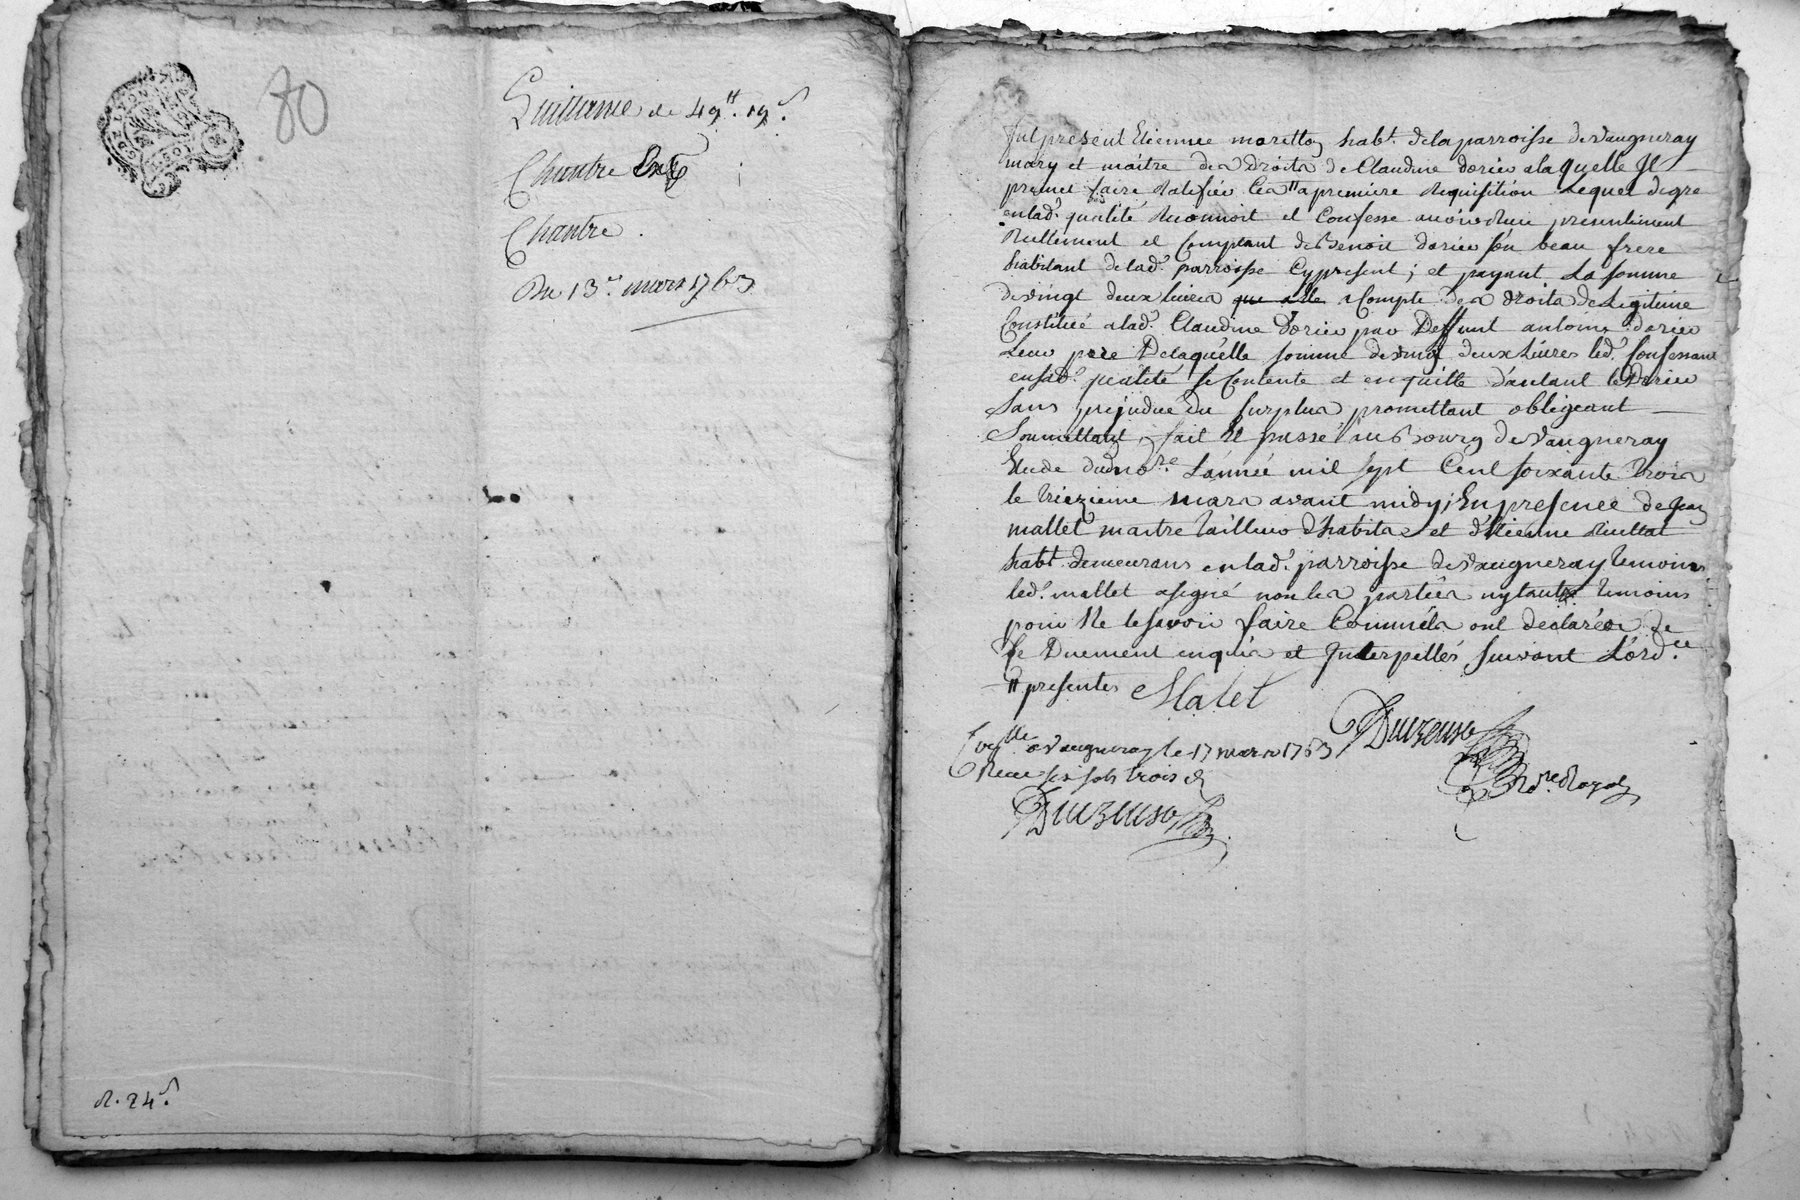 80
Quittance de 49# 19s.
Chantre
Chantre.
Du 13e. mars 1763
R. 24s.
fut present Etienne moretton habt. de la parroisse de Vaugneray
mary et maitre des droits de Claudine dorier a laquelle Il
promet faire Ratifier les " a premiere Requisition Lequel de gré
en lad. qualité Reconnoit et Confesse avoir Receu presentement
Reellement et Comptant de Benoit dorier son beau frere
habitant de lad. parroisse Cy present ; et payant La somme
de vingt deux livres a Compte des droits de Legitime
Constitué a lad. Claudine Dorier par Deffunt antoine dorier
Leur pere De laquelle somme de vingt deux Livres led. Confessant
en sad. qualité se Contente et en quitte d'autant le Dorier
Sans prejudice du surplus promettant obligeant
Soumettant, fait et passé au Bourg de Vaugneray
Etude du nore. L'année mil sept Cent soixante trois
le treizieme mars avant midy ; En presence de Jean
mallet maitre tailleur d'habits et d'Etienne Ruillat
habt. demeurans en lad. parroisse de Vaugneray temoins
led. mallet a signé non les parties ny l'autre temoins
pour Ne le savoir faire Comme ils ont declarés de
ce Duement enquis et Interpellés suivant L'ordce.
" presentes Malet
Duizeuso
Conlle. a Vaugneray le 17 mars 1763
Receu six sols trois d
Duizeuso
nore. Royal